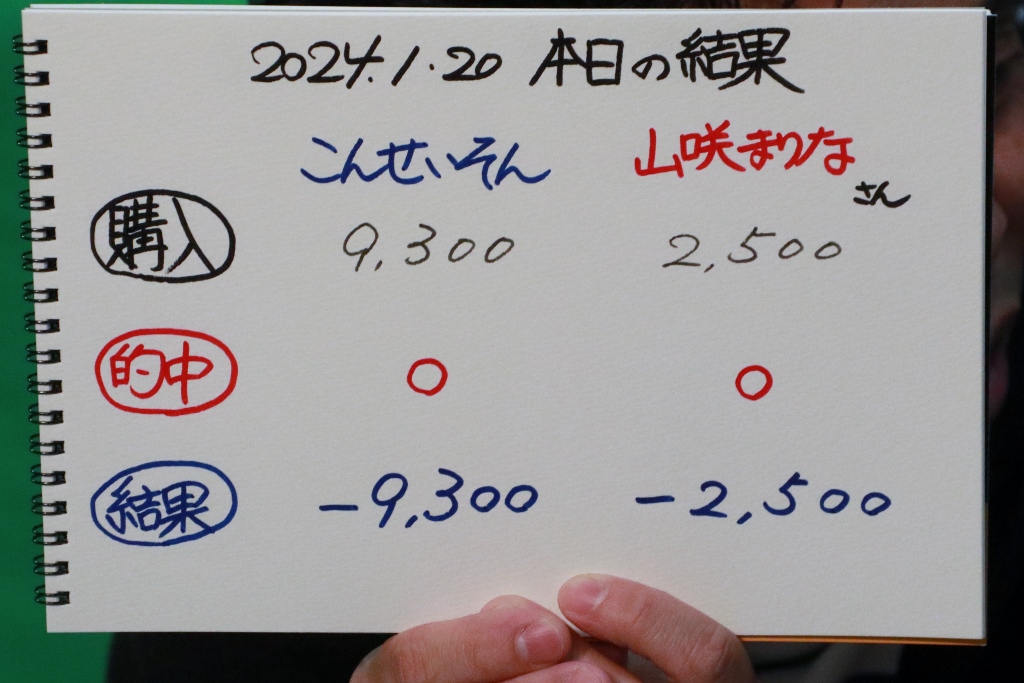 2024.1.20 本日の結果
こんせいそん 山咲まりな さん
購入 9,300 2,500
的中 0 0
結果 -9,300 -2,500